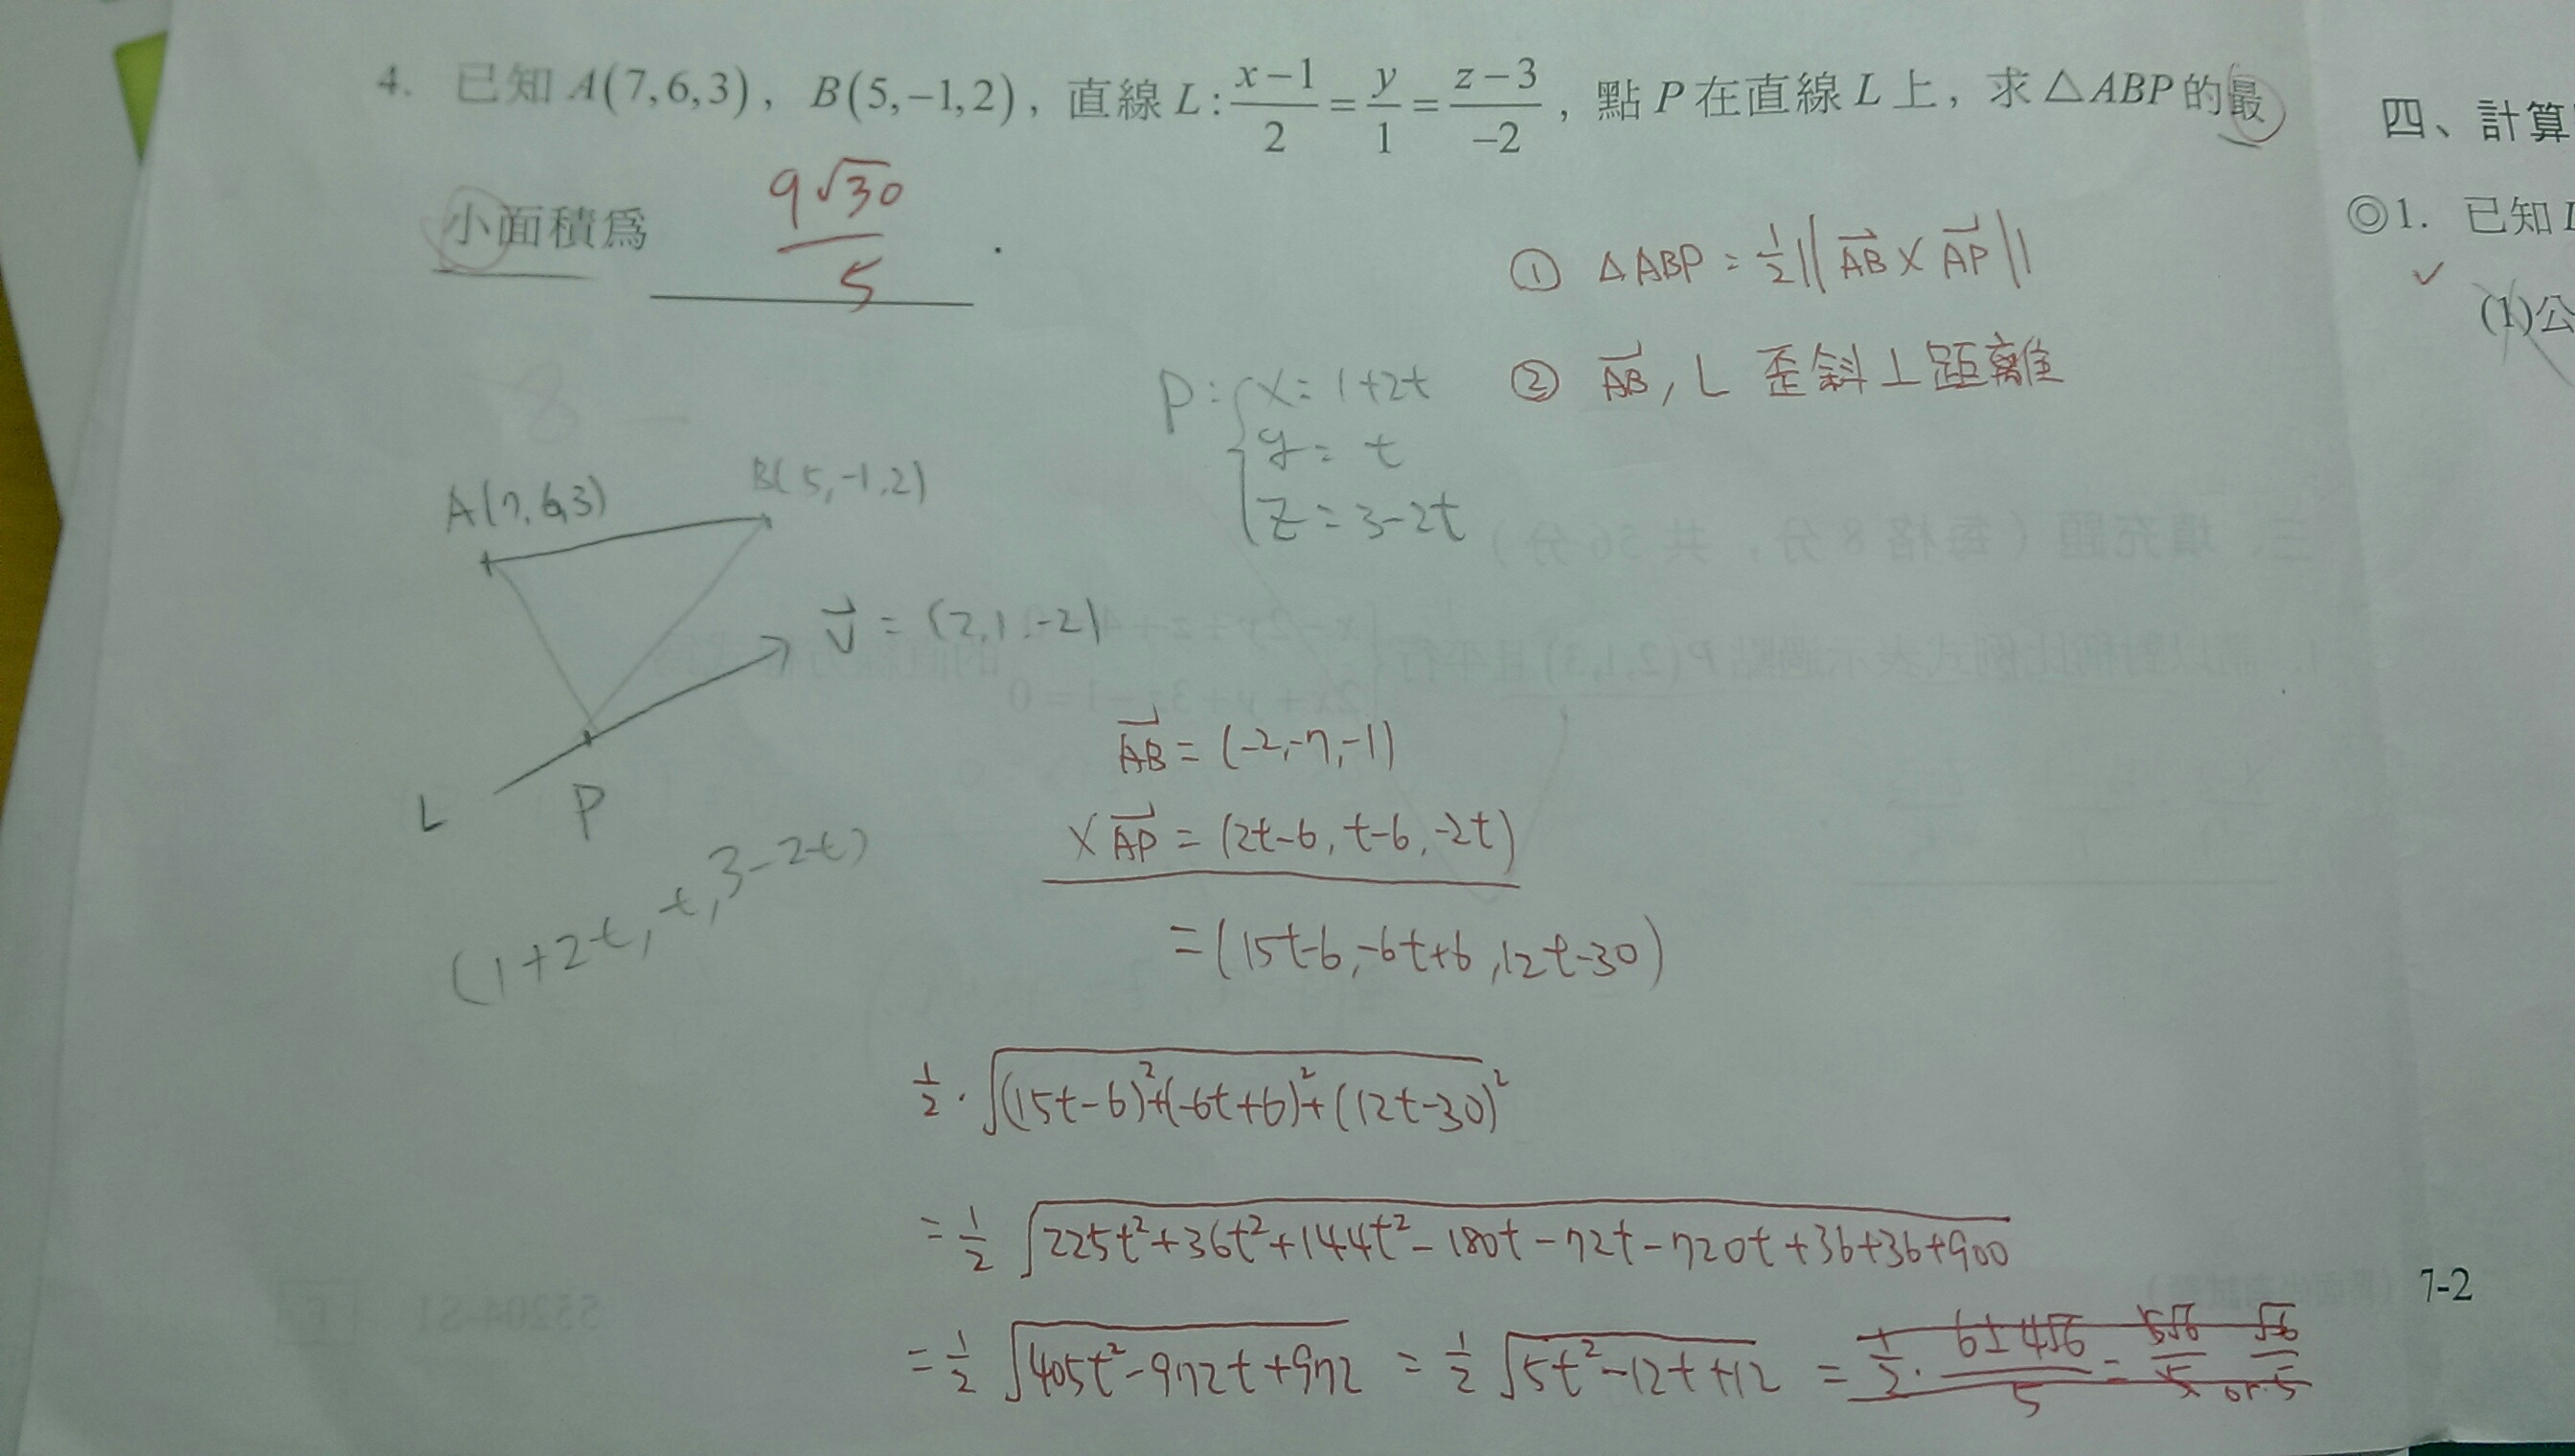 4. 已知 A(7,6,3), B(5,-1,2), 直線 L: (x-1)/2 = y/1 = (z-3)/-2, 點 P 在直線 L 上, 求 △ABP 的最
小面積為 9√30/5 .
① △ABP = 1/2 ||AB × AP||
② AB, L 歪斜⊥距離
P: { x = 1+2t
y = t
z = 3-2t
A(7,6,3) B(5,-1,2)
V = (2,1,-2)
L P
(1+2t, t, 3-2t)
AB = (-2,-7,-1)
× AP = (2t-6, t-6, -2t)
= (15t-6, -6t+6, 12t-30)
1/2 · √(15t-6)²+(-6t+6)²+(12t-30)²
= 1/2 √225t²+36t²+144t²-180t-72t-720t+36+36+900
= 1/2 √405t²-972t+972 = 1/2 √5t²-12t+12 = 1/2 · 6±4√6/5 =
四、計算
◎1. 已知 L
(1)公
三、填充題（每格 8 分，共 56 分）
7-2